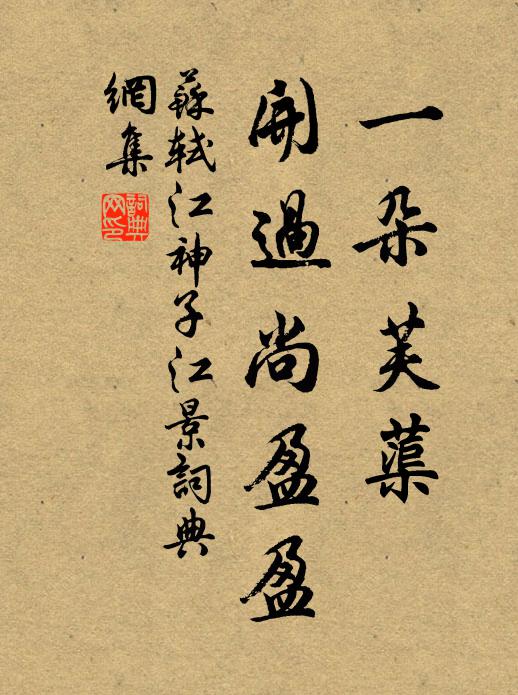 一朵芙蕖
開過尚盈盈
蘇軾江神子江景詞典
網集
詞典
网印